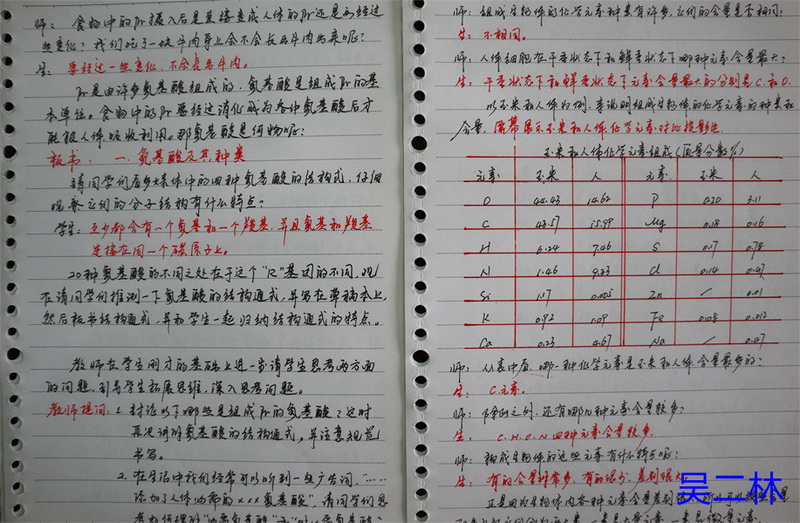 师：食物中的Pr摄入后是直接变成人体的Pr还是要经过
一些变化？我们吃了一块牛肉身上会不会长出牛肉来呢？
生：要经过一些变化，不会长出牛肉。
Pr是由许多氨基酸组成的，氨基酸是组成Pr的基
本单位。食物中的Pr要经过消化成为各种氨基酸后才
能被人体吸收利用。那氨基酸是何物呢？
板书：一. 氨基酸及其种类
请同学们看多媒体中的四种氨基酸的结构式，仔细
观察它们的分子结构有什么特点？
学生：至少都含有一个氨基和一个羧基，并且氨基和羧基
连接在同一个碳原子上。
20种氨基酸的不同之处在于这个"R"基团的不同，现
在请同学们推测一下氨基酸的结构通式，并写在草稿本上，
然后板书结构通式，并和学生一起归纳结构通式的特点。
教师在学生刚才的基础上进一步请学生思考两方面
的问题，引导学生拓展思维，深入思考问题。
教师提问：1. 讨论以下哪些是组成Pr的氨基酸？这时
再次讲解氨基酸的结构通式，并注意规范
书写。
2. 在生活中我们经常可以听到一些广告词，"……
添加了人体必需的×××氨基酸"，请同学们思
师：组成生物体的化学元素种类有许多，它们的含量是否相同？
生：不相同。
师：人体细胞在干重状态下和鲜重状态下哪种元素含量最大？
生：干重状态下和鲜重状态下元素含量最大的分别是C和O。
以玉米和人体为例，来说明组成生物体的化学元素的种类和
含量，屏幕展示玉米和人体化学元素对比投影片
玉米和人体化学元素组成（质量分数%）
元素 玉米 人 元素 玉米 人
O 44.43 14.62 P 0.20 3.11
C 43.57 55.99 Mg 0.18 0.16
H 6.24 7.46 S 0.17 0.78
N 1.46 9.33 Cl 0.14 0.47
Si 1.17 0.005 Zn / 0.01
K 0.92 1.09 Fe 0.08 0.012
Ca 0.23 4.67 Na / 0.47
师：从表中看，哪一种化学元素是玉米和人体含量最多的？
生：C元素。
师：除此之外，还有哪几种元素含量较多？
生：C、H、O、N四种元素含量较多。
师：构成生物体的这些元素有什么特点呢？
生：有的含量非常多，有的很少，差别很大
吴二林